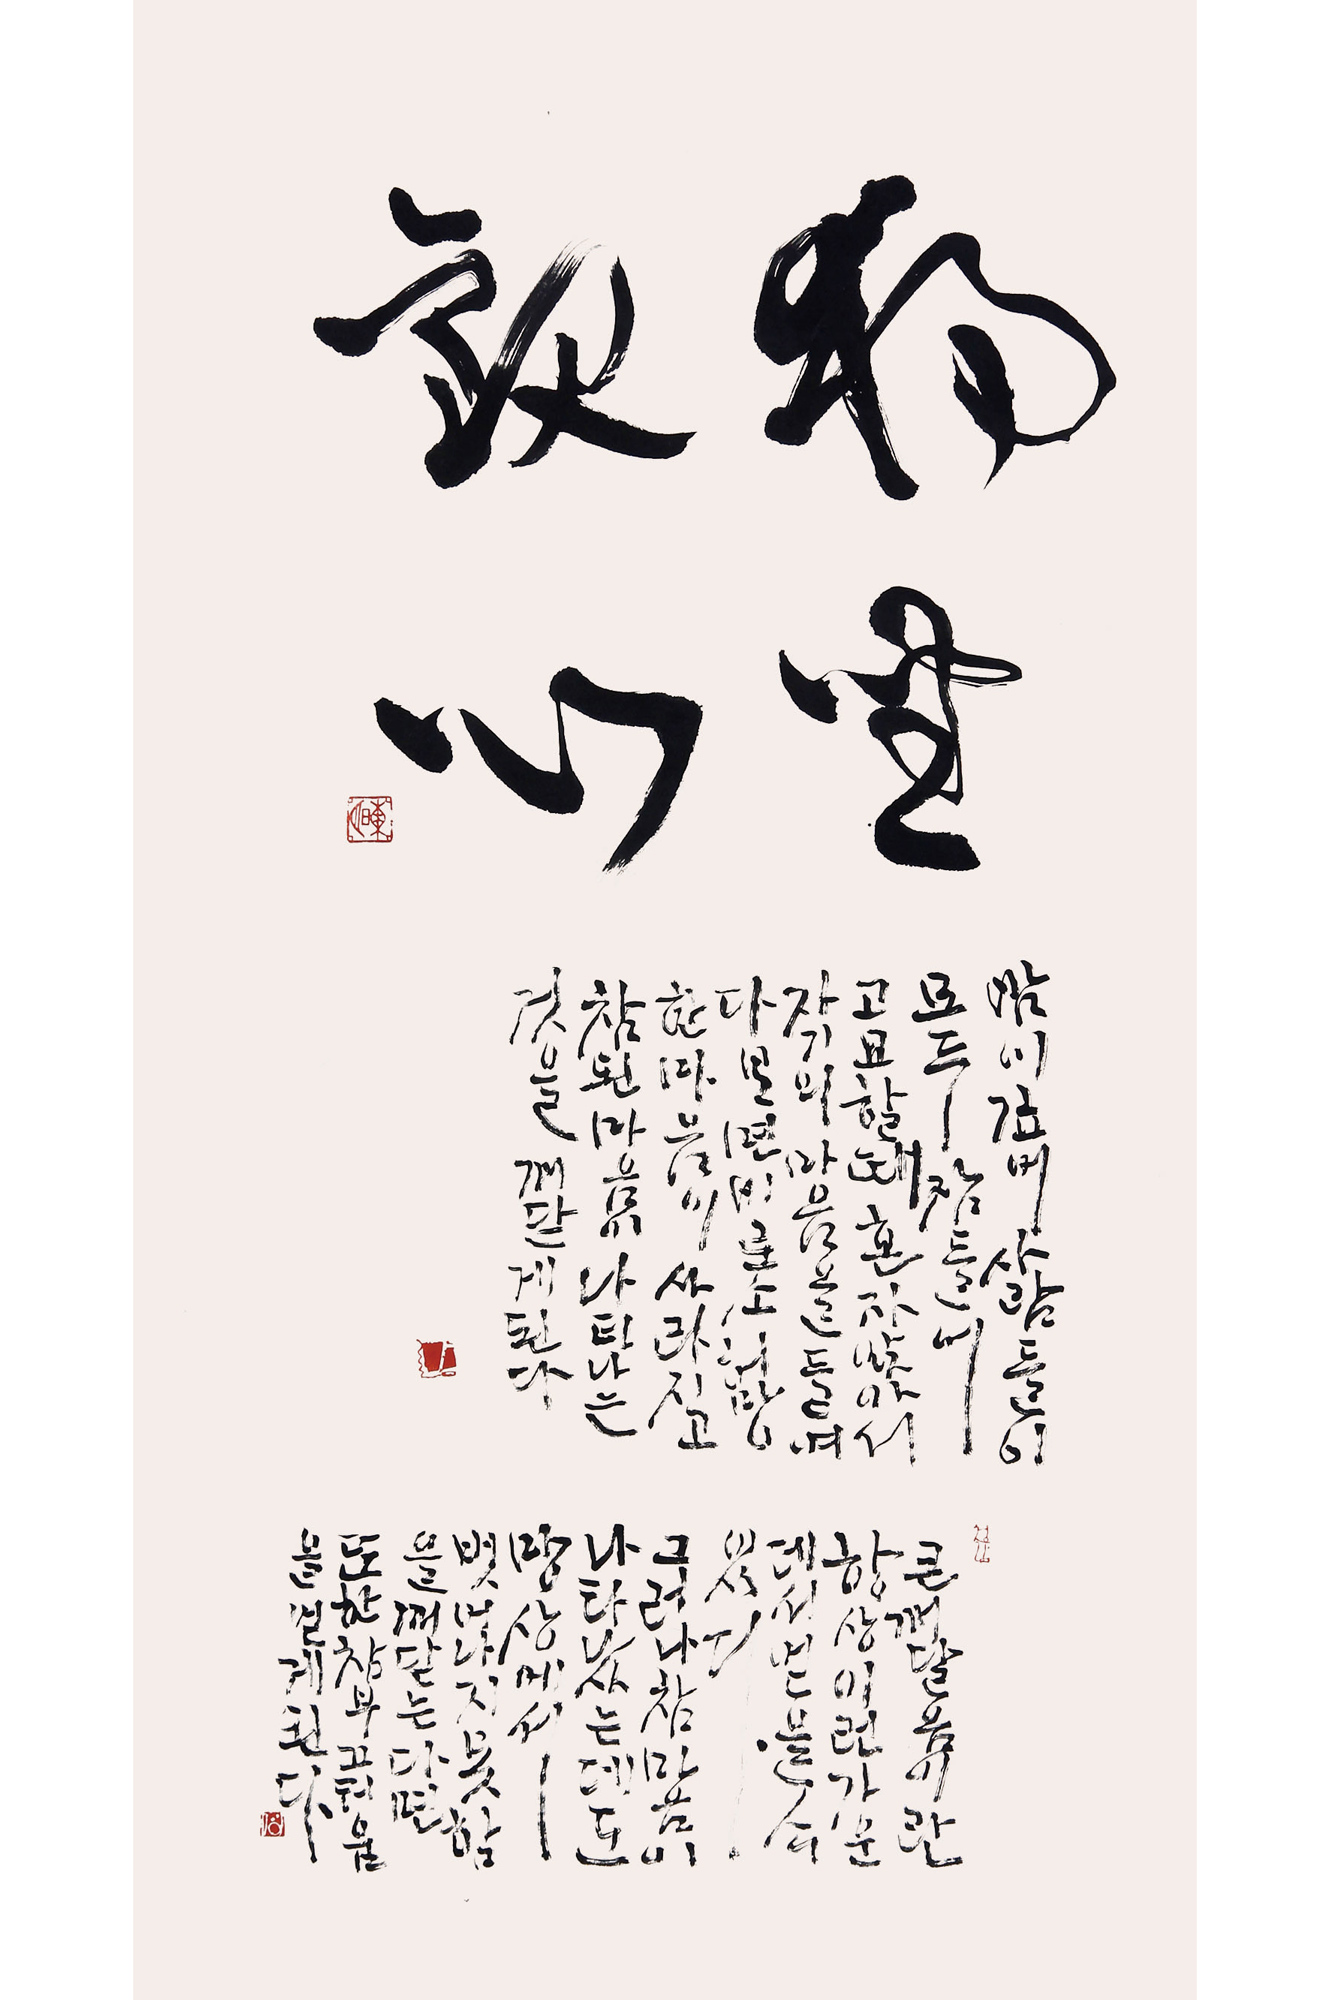 獨坐
觀心
밤이 깊어 사람들이
모두 잠들어
고요할 때 혼자 앉아서
자기의 마음을 들여
다보면 비로소 허망
한 마음이 사라지고
참된 마음이 나타나는
것을 깨닫게 된다
큰 깨달음이란
항상 이런 가운
데서 얻을 수
있다
그러나 참마음이
나타났는데도
망상에서
벗어나지 못함
을 깨닫는다면
또한 참 부끄러움
을 얻게 된다